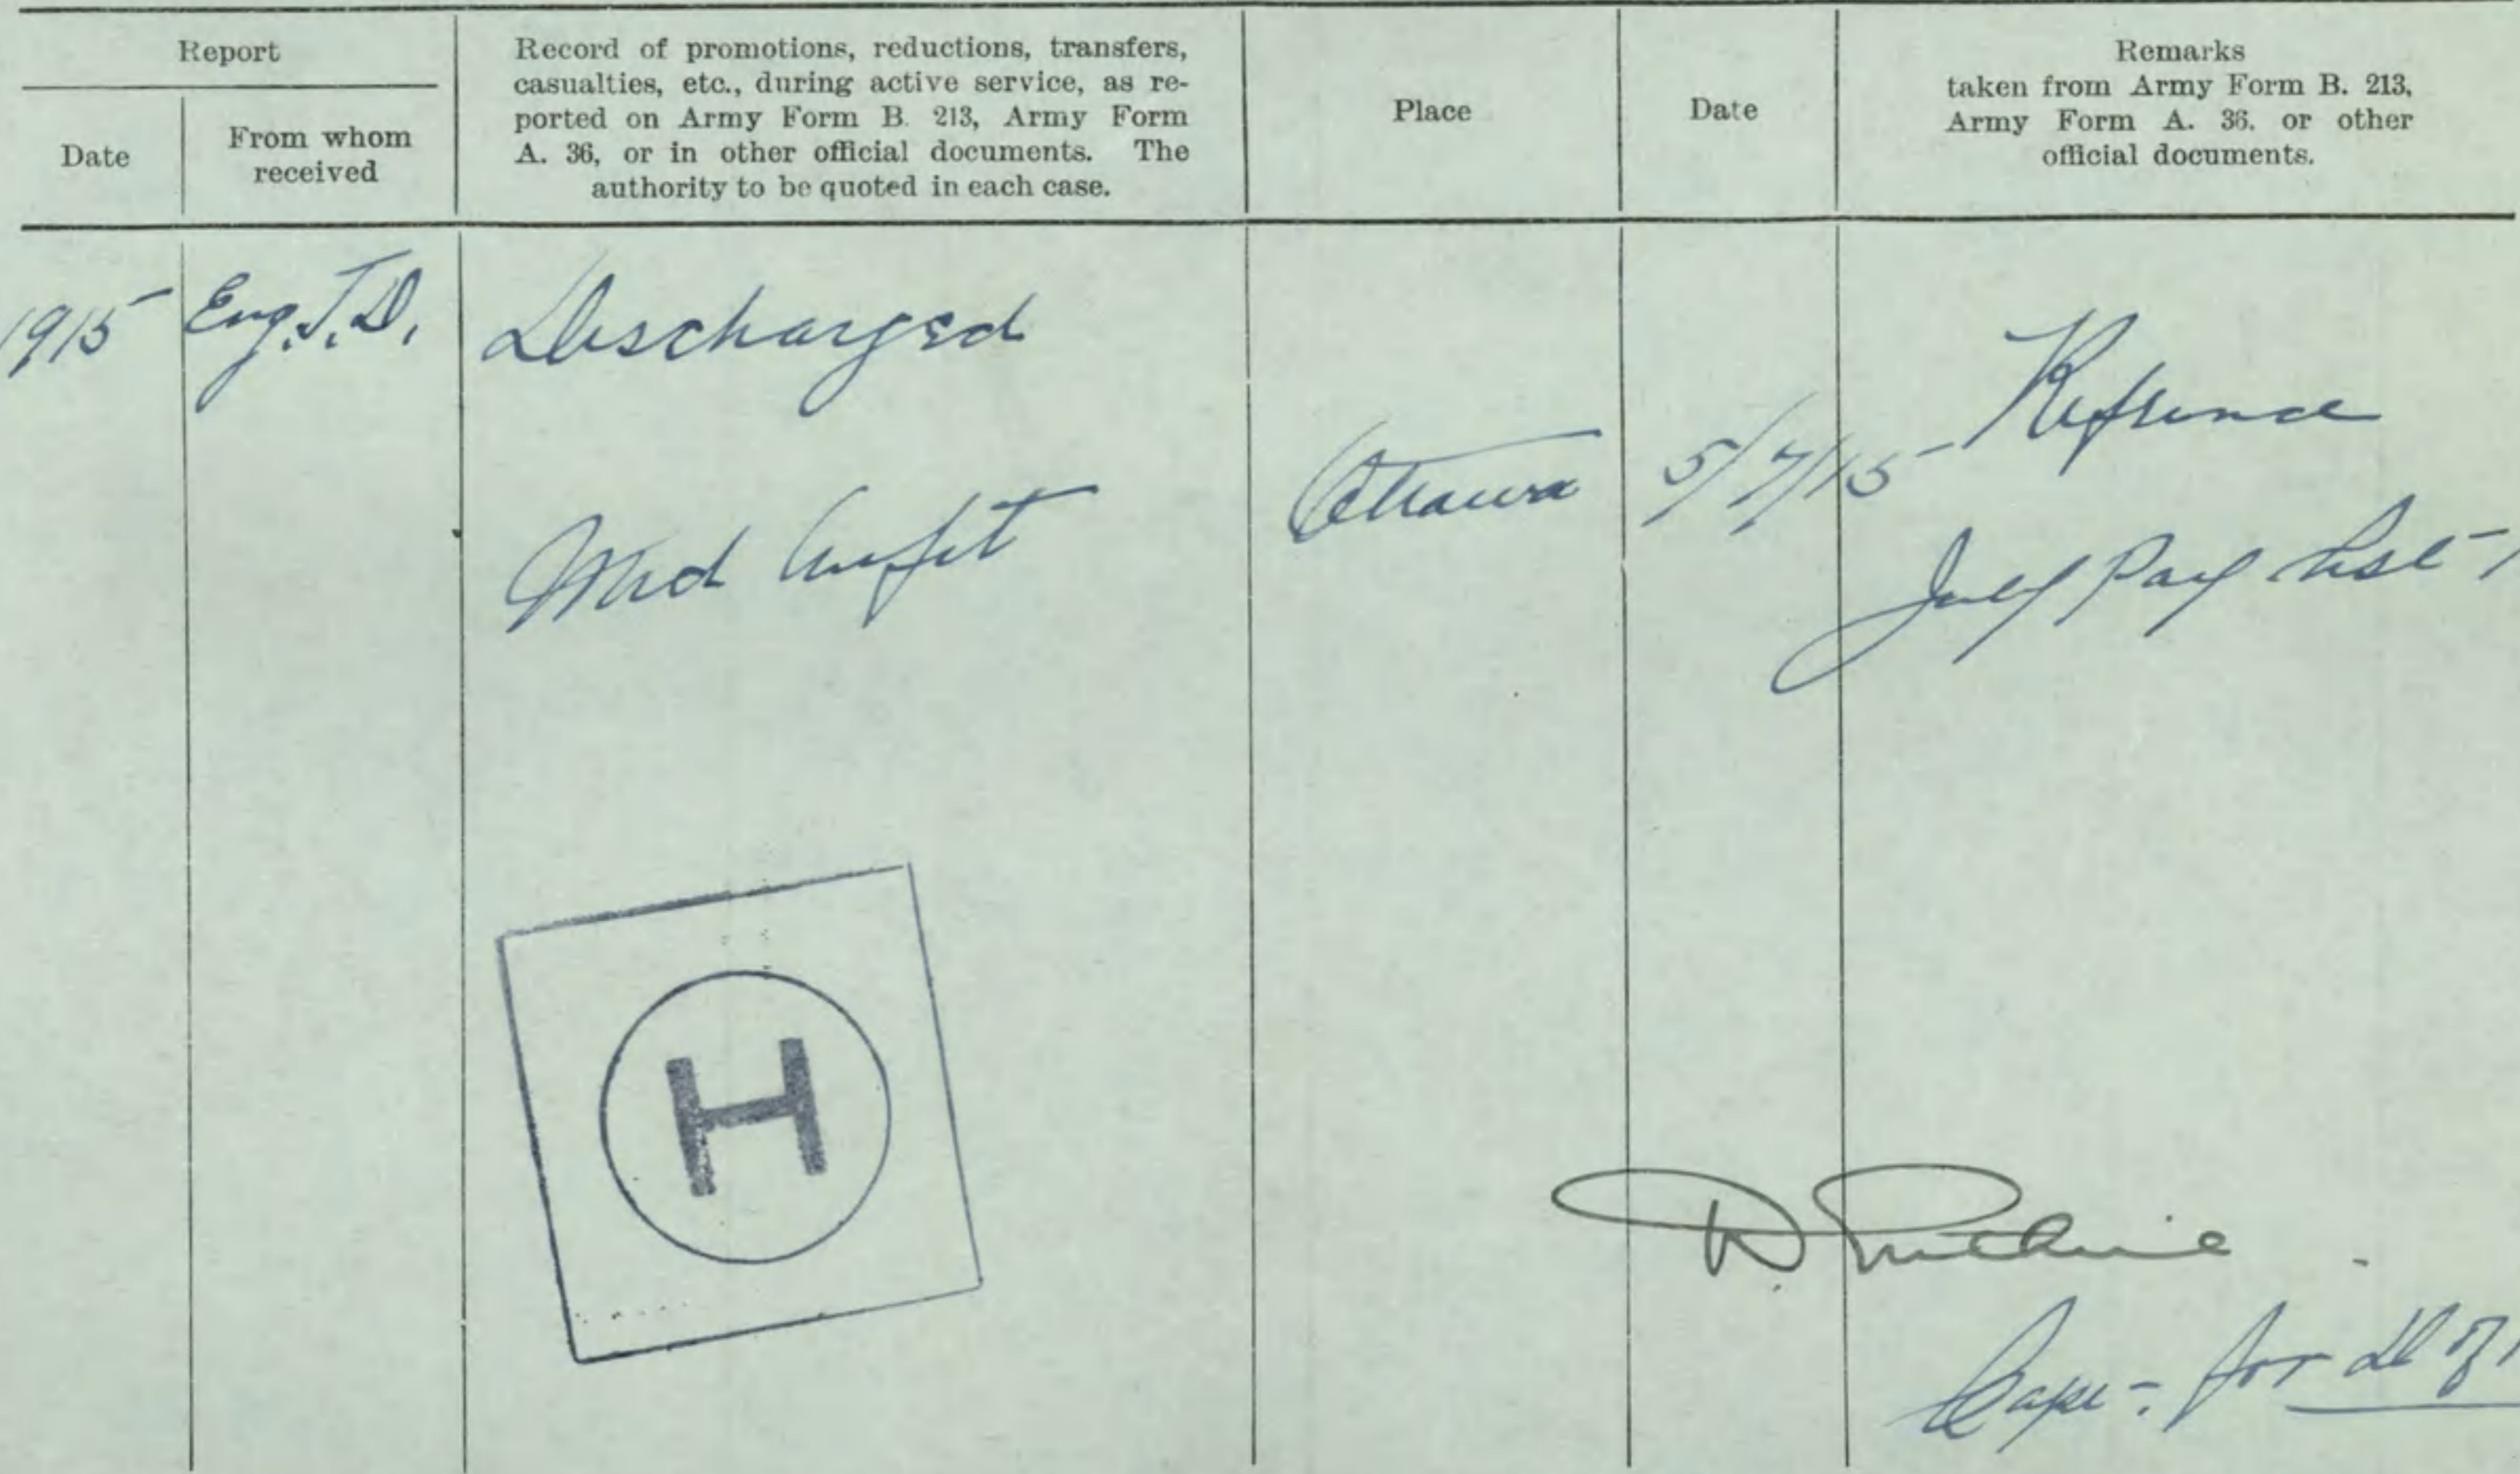 Report
Date
From whom
received
Record of promotions, reductions, transfers,
casualties, etc., during active service, as re-
ported on Army Form B. 213, Army Form
A. 36, or in other official documents. The
authority to be quoted in each case.
Place
Date
Remarks
taken from Army Form B. 213,
Army Form A. 36. or other
official documents.
1915 Eng. T.D. Discharged
Med Unfit
Ottawa 5/7/15
Refrence
July Pay List
H
D
Capt. for